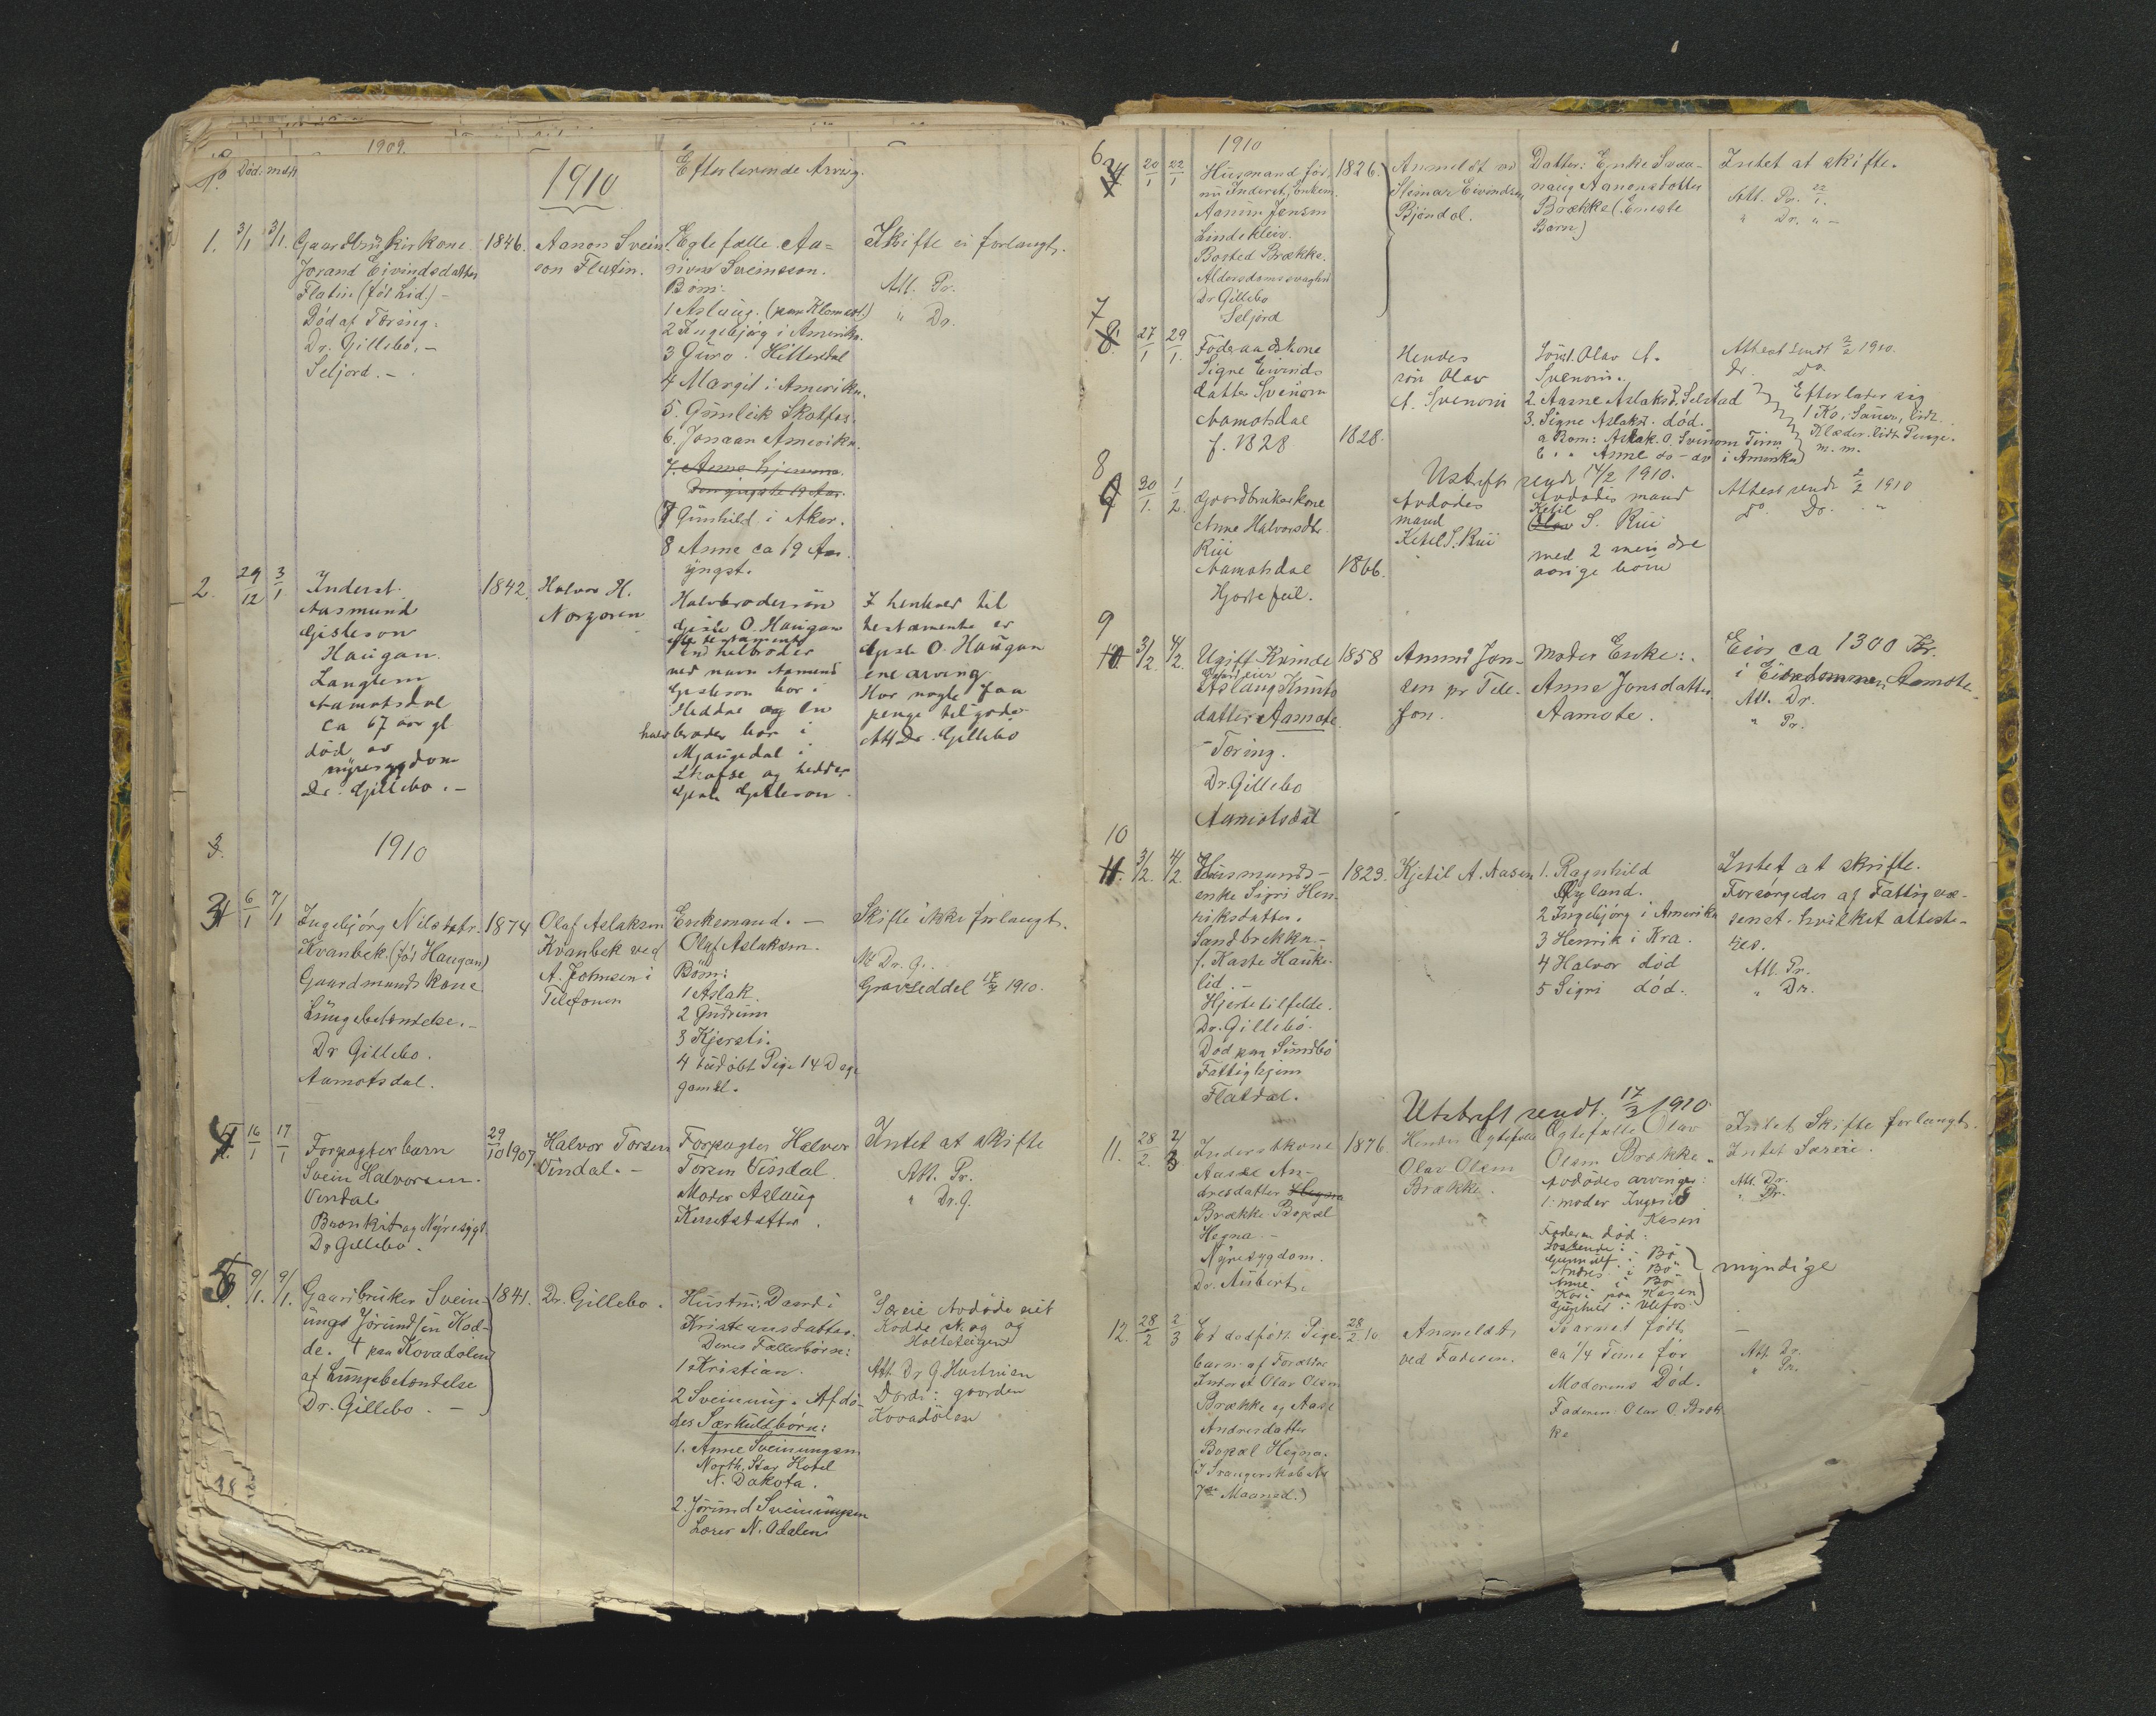 1909.
No Död. mdt
1910
Efterlevende Arving.
1. 3/1 3/1. Gaardbrukerkone
Jorand Eivindsdatter
Flatin (föd Lid.) –
Död af Tæring.
Dr. Gillebo. –
Seljord. –
1846.
Aanon Svein-
son Flatin.
Egtefælle Aa-
non Sveinsson.
Born:
1 Aslaug.
2 Ingebjörg i Amerika.
3 Guro. Hitterdal
4 Margit i Amerika.
5. Gunleik Skotfos.
6. Joraan Amerika.
7. Anne hjemme.
Den yngste 19 Aar.
7 Gunhild i Aker.
8 Anne ca 19 Aar
yngst.
Skifte ei forlangt.
Att. Pr.
" Dr.
2. 29/12 3/1 Inderst
Aasmund
Gisleson
Haugan.
Langlem
Aamotsdal
ca 67 aar gl.
död av
nyresygdom
Dr. Gillebo. –
1842.
Halvor H.
Norgoren
Halvbrodersön
Gisle O. Haugan
efter testamente
En helbroder
ved navn Aamund
Gisleson bor i
Heddal og en
halvbroder bor i
Mjaugedal i
Skafse og hedder
Gisle Gisleson
I henhold til
testamente er
Gisle O. Haugan
ene arving
Har nogle faa
penge tilgode
Att Dr. Gillebo
3.
1910
3 6/1 7/1 Ingebjörg Nilsdtr.
Kvanbek. (föd Haugan)
Gaardmands kone
Lungebetændelse. –
Dr Gillebo.
Aamotsdal.
1874
Olaf Aslaksen
Kvanbek ved
A. Johnsen i
Telefonen
Enkemand. –
Olaf Aslaksen.
Börn:
1 Aslak.
2 Gudrun
3 Kjersti.
4 Uddöbt Pige 14 Dage
gamel.
Skifte ikke forlangt.
Att Dr. G.
Gravseddel 1910.
4 16/1 17/1 Forpagterbarn
Svein Halvorsen.
Vindal.
Bronkit og Nyresygd.
Dr Gillebo.
29/10 1907.
Halvor Torsen
Vindal. –
Forpagter Halvor
Torsen Vindal
Moder Aslaug
Knutsdatter.
Intet at skifte
Att. Pr.
" Dr. G.
5 9/1. 9/1. Gaardbruker Svein-
ung Jörundsen Kod-
de. † paa Kovadalen
af Lungebetændelse
Dr. Gillebo. –
1841.
Dr. Gillebo.
Hustru, Daardi
Kristensdatter.
Deres Fællesbörn:
1 Kristian.
2 Sveinung. Afdö-
des Særkuldbörn:
1. Anne Sveinungsen
North. Star Hotel
N. Dakota.
2. Jörund Sveinungsen
Lærer N. Odalen
Særeie Avdöde eiet
Kodde skog og
Holteteigen
Att Dr G. Hustruen
Dordi: gaarden
Kovadalen
48
1910
6. 20/1 22/1 Husmand för,
nu Inderst, Enkem.
Aanun Jensen
Lindekleiv.
Bosted Brække.
Alderdomssvaghed
Dr Gillebo
Seljord
1826.
Anmeldt av
Steinar Eivindsen
Bjöndal.
Datter: Enke Svaa-
naug Aanonsdatter
Brække (Eneste
Barn)
Intet at skifte.
Att. Pr. 22/1.
" Dr. " –
7
8. 27/1 29/1. Föderaadskone
Signe Eivinds
datter Svinom
Aamotsdal
f. 1828
1828.
Hendes
sön Olav
A. Svenom
Sön 1. Olav A.
Svenom.
2. Aasne Aslaksd. Selstad
3. Signe Aslaksd. död.
a Barn: Aslak O. Svinom Tinn
b " " Anne do – do i Amerika
Attest sendt 2/2 1910.
Dr. Do
Efterlater sig
1 Ko, Sauer, lidt
Klæder lidt Penge.
m. m.
Utskrift sendt 14/2 1910.
8
9 30/1. 1/2. Gaardbrukerkone
Anne Halvorsdtr.
Rui
Aamotsdal
Hjertefeil.
1866.
Avdödes
mand
Ketel S. Rui
Avdödes mand
Ketil
Olav S. Rui
med 2 mindre
aarige börn
Attest sendt 2/2 1910
Do. Do. "
9
10 3/2. 4/2. Ugift Kvinde
Gaardeier
Aslaug Knuts
datter Aamote.
– Tæring.
Dr. Gillebo
Aamotsdal
1858
Amund Jon-
sen pr Tele-
fon.
Moder Enke:
Anne Jonsdatter
Aamote.
Eier ca 1300 Kr.
i Eiendommen Aamote.
Att. Dr.
" Pr.
10
11. 3/2. 4/2. Husmands-
enke Sigri Hen-
riksdatter.
Sandbrekka –
f. Kaste Hauke-
lid. –
Hjertetilfelde.
Dr. Gillebo.
Död paa Sundbö
Fattighjem
Flatdal.
1823.
Kjetil A. Aasen
1. Ragnhild
Ryland.
2 Ingebjörg i Amerika
3 Henrik i Kra.
4 Halvor död
5 Sigri död.
Intet at skifte.
Forsörgedes af Fattigvæ-
senet. hvilket atteste-
res.
Att. Pr.
" Dr.
Utskrift sendt. 17/3 1910.
11. 28/2. 2/3 Inderstkone
Aasle An-
dresdatter Hegna
Brække Bopæl
Hegna. –
Nyresygdom.
Dr. Aubert.
1876.
Hendes Ægtefelle
Olav Olsen
Brække.
Ægtefælle Olav
Olsen Brække.
Avdödes arvinger:
1. moder Ingerid
Kasin
Faderen död.
Söskende:
Gunnulf i Bö
Andres i Bö
Anne i Bö
Kari paa Kasin
Gunhild i Ulefos.
myndige
Intet Skifte forlangt.
Intet Særeie.
Att. Dr.
" Pr.
12. 28/2 2/3 Et dödfödt Pige-
barn af Forældre
Inderst Olav Olsen
Brække og Aasl
Andresdatter
Bopæl Hegna.
(I Svangerskabets
7de Maaned.)
28/2 10
Anmeldt
ved Faderen.
Barnet födt
ca 1/4 Time för
Moderens Död.
Faderen: Olav O. Bræk-
ke
–
Att. Dr.
" Pr.